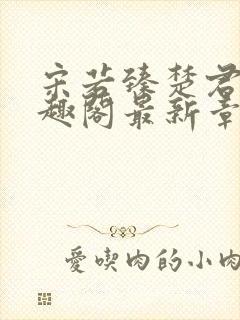 宋若臻楚君
趣阁最新章
愛喫肉的小肉